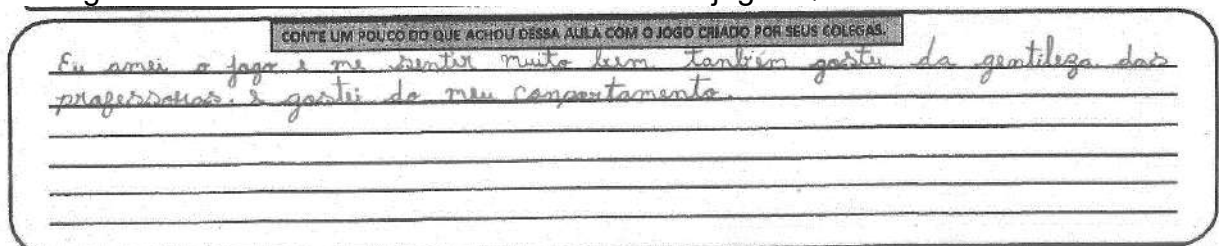 CONTE UM POUCO DO QUE ACHOU DESSA AULA COM O JOGO CRIADO POR SEUS COLEGAS.
Eu amei o jogo e me sentir muito bem tanbém gostei da gentileza das
professoras. e gostei do meu conportamento.